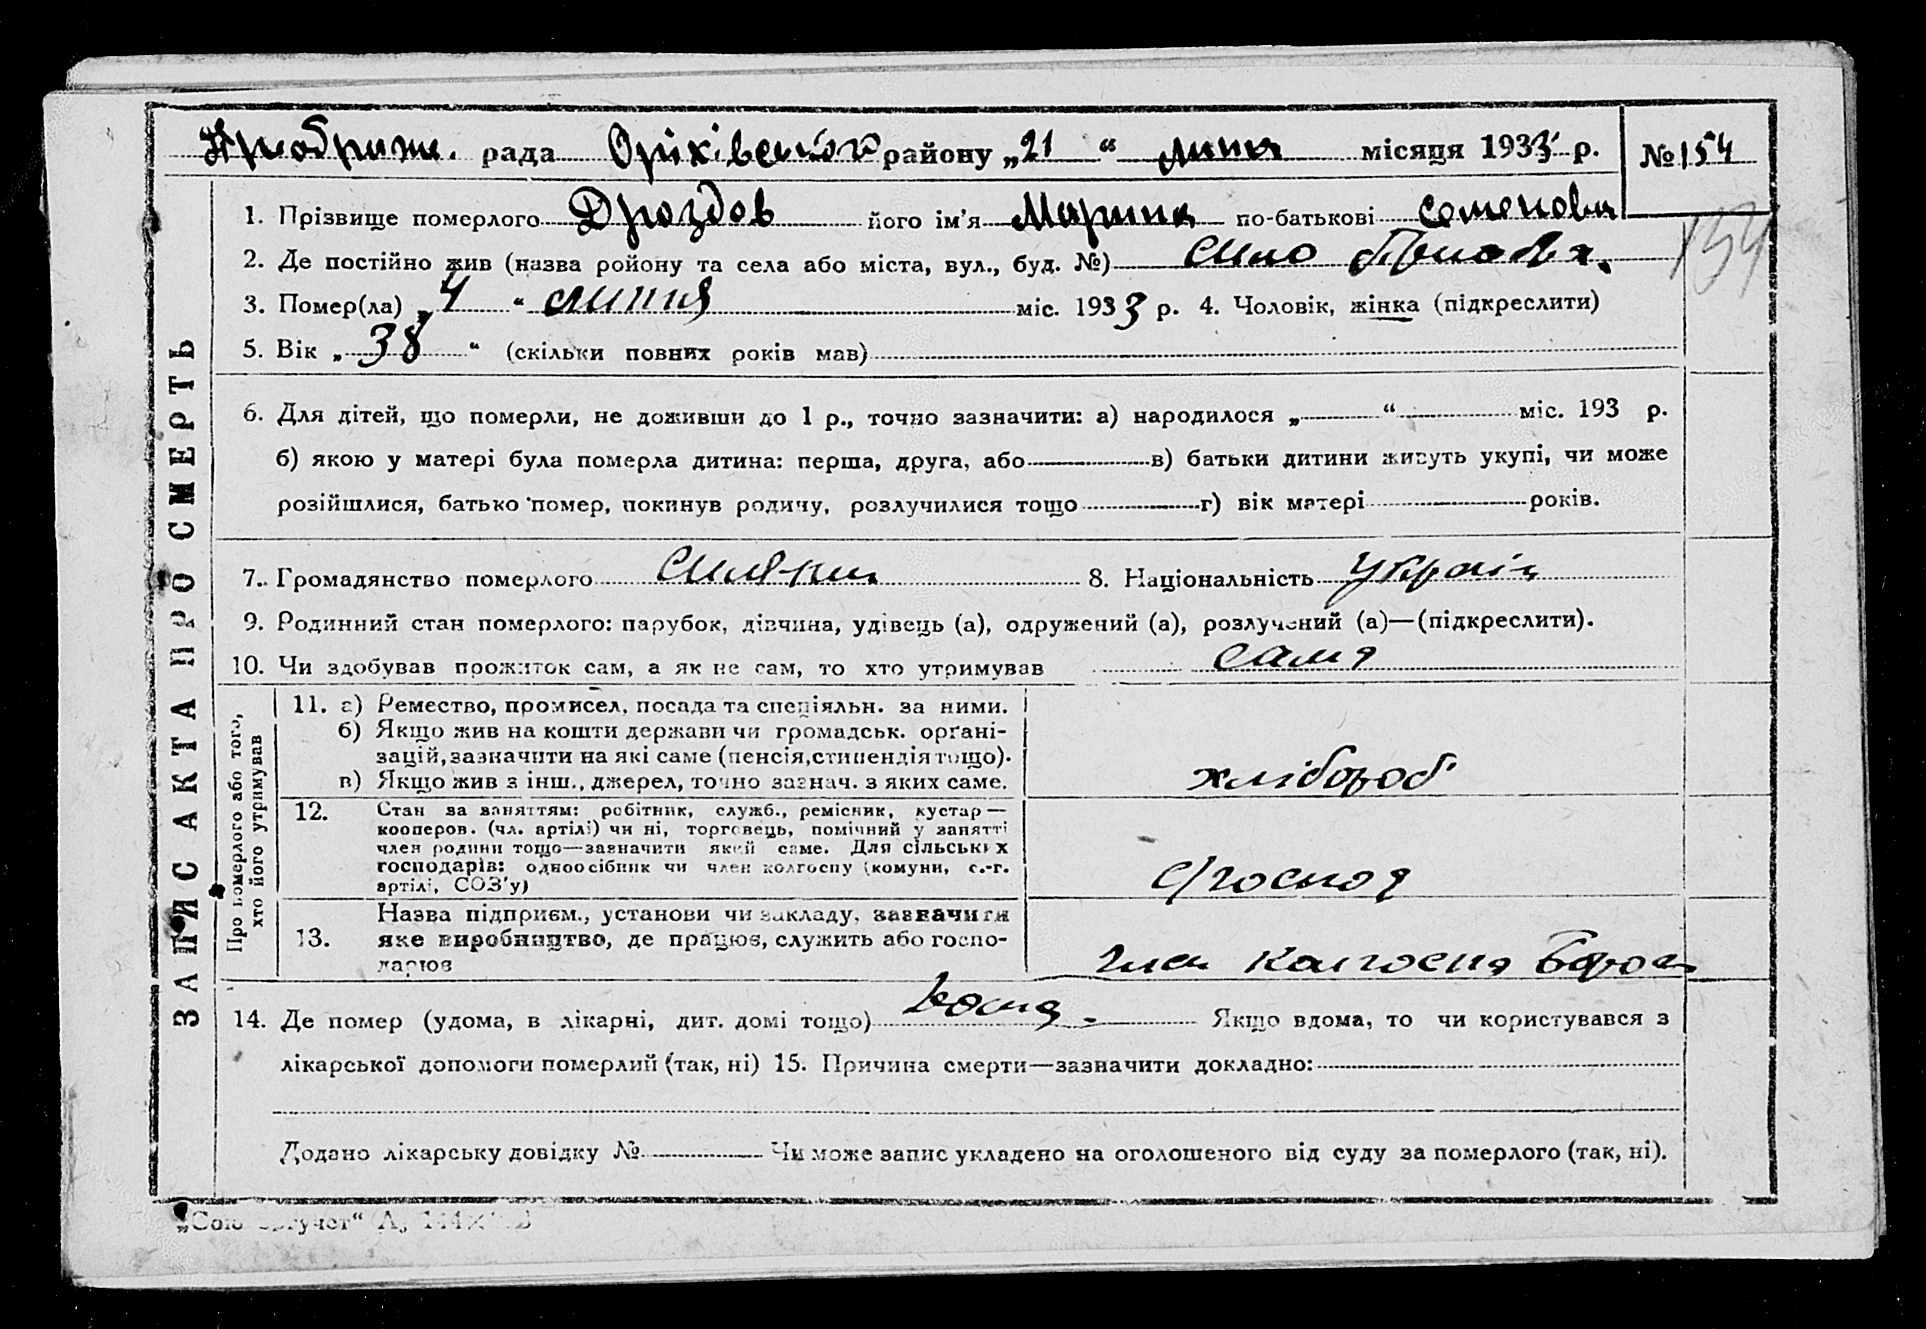 рада Оріхівськог району „21“ липня місяця 1933 р. № 154
1. Прізвище померлого Дроздов його ім'я Марина по-батькові Семенова
154
2. Де постійно жив (назва ройону та села або міста, вул., буд. №) село
3. Помер(ла) „4“ липня міс. 1933 р. 4. Чоловік, жінка (підкреслити)
5. Вік „38“ (скільки повних років мав)
6. Для дітей, що померли, не доживши до 1 р., точно зазначити: а) народилося „ “ міс. 193 р.
б) якою у матері була померла дитина: перша, друга, або в) батьки дитини живуть укупі, чи може
розійшлися, батько помер, покинув родину, розлучилися тощо г) вік матері років.
7. Громадянство померлого 8. Національність Україн
9. Родинний стан померлого: парубок, дівчина, удівець (а), одружений (а), розлучений (а)—(підкреслити).
10. Чи здобував прожиток сам, а як не сам, то хто утримував сама
ЗАПИС АКТА ПРО СМЕРТЬ
Про померлого або того,
хто його утримував
11. а) Ремество, промисел, посада та спеціяльн. за ними.
б) Якщо жив на кошти держави чи громадськ. органі-
зацій, зазначити на які саме (пенсія, стипендія тощо).
в) Якщо жив з інш., джерел, точно зазнач. з яких саме.
хлібороб
12. Стан за заняттям: робітник, служб., ремісник, кустар—
кооперов. (чл. артілі) чи ні, торговець, помічний у занятті
член родини тощо—зазначити який саме. Для сільських
господарів: одноосібник чи член колгоспу (комуни, с.-г.
артілі, СОЗ'у)
с/господ
13. Назва підприєм., установи чи закладу, зазначити
яке виробництво, де працює, служить або госпо-
дарює
член колгоспа
14. Де помер (удома, в лікарні, дит. домі тощо) вдома. Якщо вдома, то чи користувався з
лікарської допомоги померлий (так, ні) 15. Причина смерти—зазначити докладно:
Додано лікарську довідку № Чи може запис укладено на оголошеного від суду за померлого (так, ні).